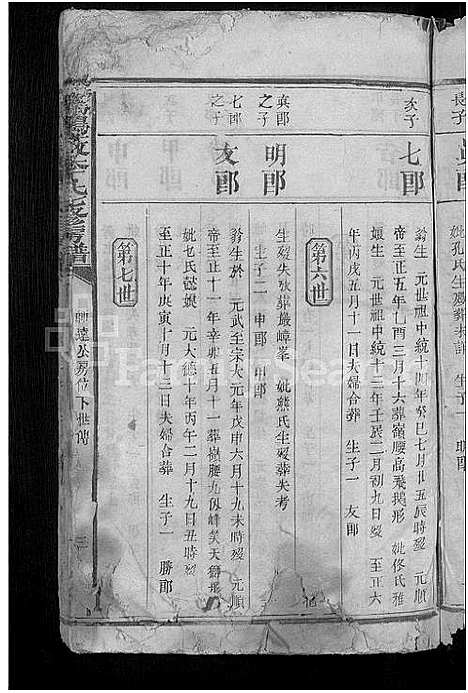 長子
次子
七郎
翁生 元世祖中統十四年癸巳七月廿五辰時歿 元順
帝至正五年乙酉三月十六葬嶺腰高飛鵝形 妣佟氏雅
娘生 元世祖中統十三年壬辰二月初九日歿 至正六
年丙戌五月十一日夫婦合葬 生子一 友郎
第六世
貞郎
之子
明郎
生歿失攷葬嚴嶂峯 妣燕氏生歿葬失考
生子二 申郎 甲郎
七郎
之子
友郎
翁生於 元武至宗大元年戊申六月十九未時歿 元順
帝至正十一年辛卯五月十一葬嶺腰九似峰美天獅形
妣乜氏懿娘 元大德十年丙午二月十九日丑時歿
至正十年庚寅十月十三日夫婦合葬 生子一 勝郎
第七世
氏支修房譜
公房位下世傳
三